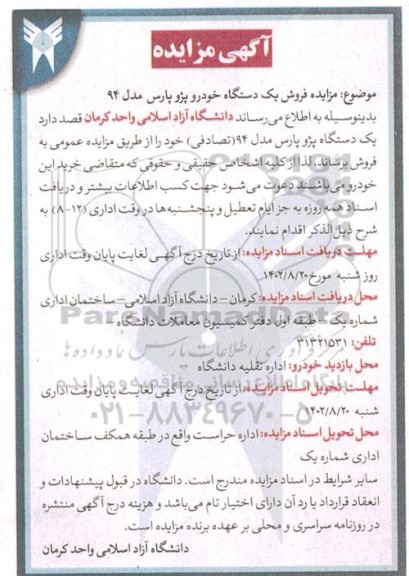 آگهی مزایده
موضوع: مزایده فروش یک دستگاه خودرو پژو پارس مدل ۹۴
بدینوسیله به اطلاع می‌رساند دانشگاه آزاد اسلامی واحد کرمان قصد دارد
یک دستگاه پژو پارس مدل ۹۴(تصادفی) خود را از طریق مزایده عمومی به
فروش برساند. لذا از کلیه اشخاص حقیقی و حقوقی که متقاضی خرید این
خودرو می‌باشند دعوت می‌شود جهت کسب اطلاعات بیشتر و دریافت
اسناد همه روزه به جز ایام تعطیل و پنجشنبه‌ها در وقت اداری (۱۲-۸) به
شرح ذیل‌الذکر اقدام نمایند.
مهلت دریافت اسناد مزایده: از تاریخ درج آگهی لغایت پایان وقت اداری
روز شنبه مورخ ۱۴۰۲/۸/۲۰
محل دریافت اسناد مزایده: کرمان – دانشگاه آزاد اسلامی – ساختمان اداری
شماره یک – طبقه اول دفتر کمیسیون معاملات دانشگاه –
تلفن: ۳۱۳۲۱۵۳۱
محل بازدید خودرو: اداره نقلیه دانشگاه
مهلت تحویل اسناد مزایده: از تاریخ درج آگهی لغایت پایان وقت اداری
شنبه ۱۴۰۲/۸/۲۰
محل تحویل اسناد مزایده: اداره حراست واقع در طبقه همکف ساختمان
اداری شماره یک
سایر شرایط در اسناد مزایده مندرج است. دانشگاه در قبول پیشنهادات و
انعقاد قرارداد یا رد آن دارای اختیار تام می‌باشد و هزینه درج آگهی منتشره
در روزنامه سراسری و محلی بر عهده برنده مزایده است.
دانشگاه آزاد اسلامی واحد کرمان
ParsNamadData
۰۲۱-۸۸۳۴۹۶۷۰-۵